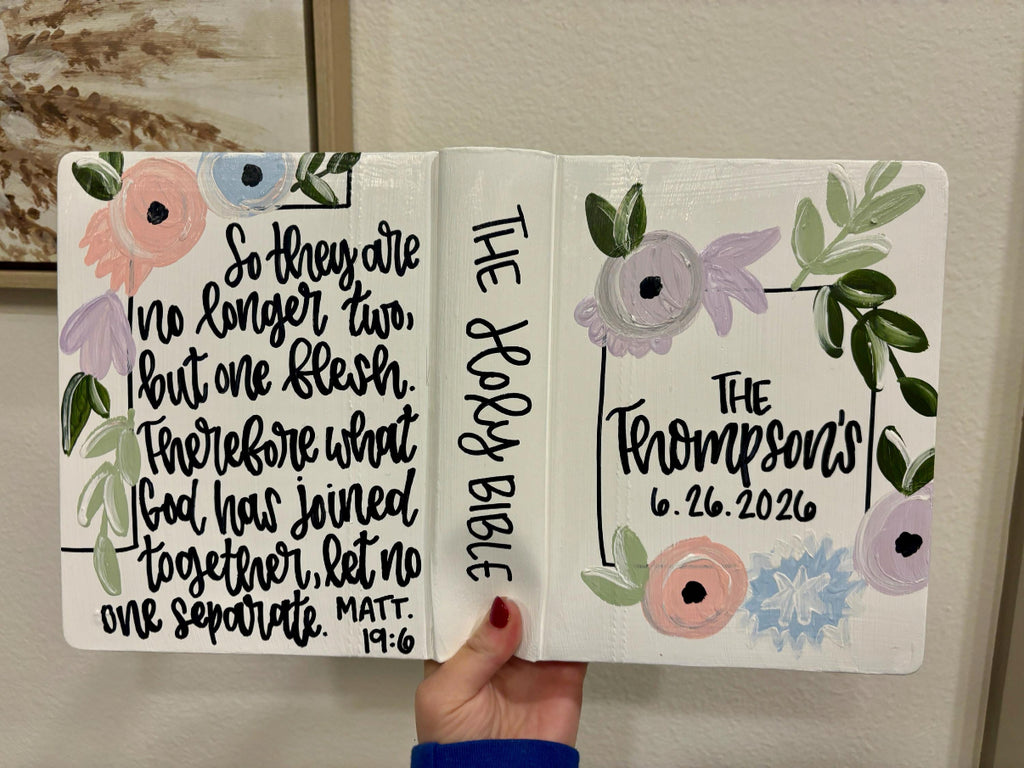 So they are
no longer two,
but one flesh.
Therefore what
God has joined
together, let no
one separate. MATT.
19:6
THE Holy BIBLE
THE
Thompson's
6.26.2026